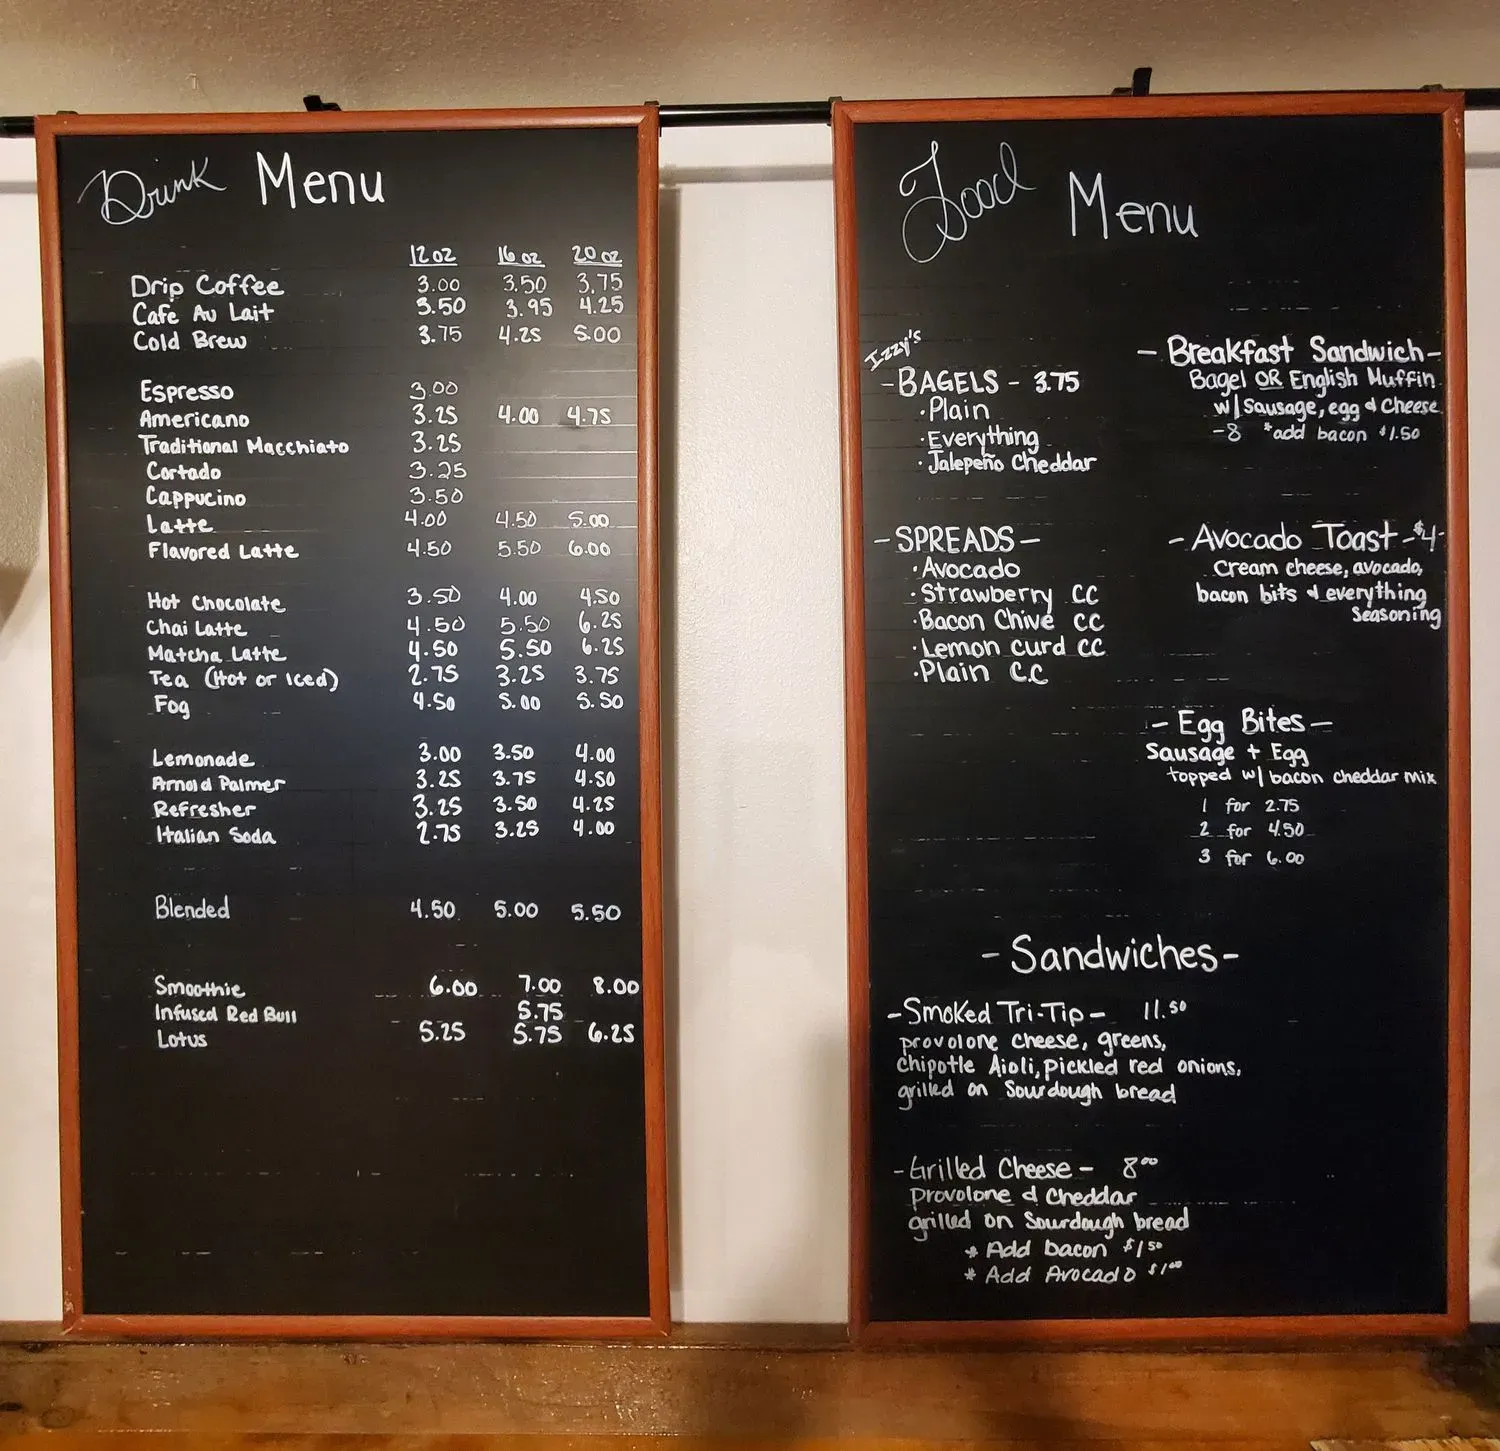 Drink Menu
12oz 16oz 20oz
Drip Coffee 3.00 3.50 3.75
Cafe Au Lait 3.50 3.95 4.25
Cold Brew 3.75 4.25 5.00
Espresso 3.00
Americano 3.25 4.00 4.75
Traditional Macchiato 3.25
Cortado 3.25
Cappucino 3.50
Latte 4.00 4.50 5.00
Flavored Latte 4.50 5.50 6.00
Hot Chocolate 3.50 4.00 4.50
Chai Latte 4.50 5.50 6.25
Matcha Latte 4.50 5.50 6.25
Tea (Hot or Iced) 2.75 3.25 3.75
Fog 4.50 5.00 5.50
Lemonade 3.00 3.50 4.00
Arnold Palmer 3.25 3.75 4.50
Refresher 3.25 3.50 4.25
Italian Soda 2.75 3.25 4.00
Blended 4.50 5.00 5.50
Smoothie 6.00 7.00 8.00
Infused Red Bull 5.75
Lotus 5.25 5.75 6.25
Food Menu
Izzy's
-BAGELS- 3.75
·Plain
·Everything
·Jalepeño Cheddar
-SPREADS-
·Avocado
·Strawberry CC
·Bacon Chive CC
·Lemon curd CC
·Plain C.C
-Breakfast Sandwich-
Bagel OR English Muffin
w/Sausage, egg & Cheese
-8 *add bacon $1.50
-Avocado Toast-$4-
Cream cheese, avocado,
bacon bits & everything
Seasoning
-Egg Bites-
Sausage + Egg
topped w/ bacon cheddar mix
1 for 2.75
2 for 4.50
3 for 6.00
-Sandwiches-
-Smoked Tri-Tip- 11.50
provolone cheese, greens,
chipotle Aioli, pickled red onions,
grilled on Sourdough bread
-Grilled Cheese- 8.00
provolone & Cheddar
grilled on Sourdough bread
* Add bacon $1.50
* Add Avocado $1.00